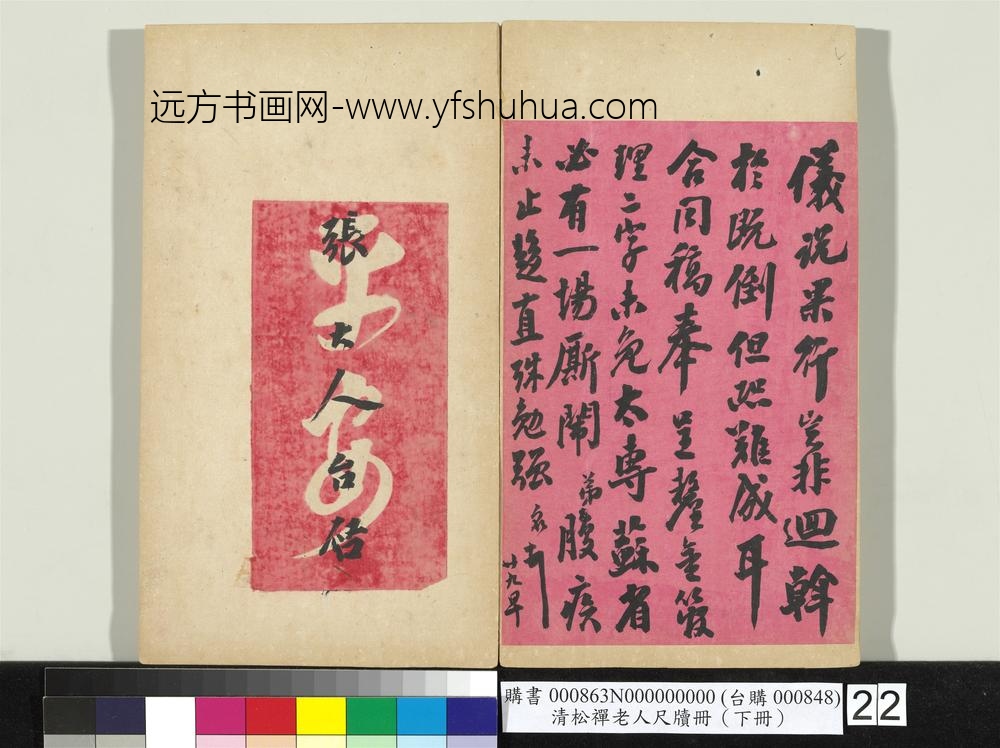 远方书画网-www.yfshuhua.com
儀說果行豈非迴斡
於既倒但恐難成耳
合同稿奉呈鏧壹篋
理二字未免太專蘇省
必有一場厮鬧弟腹疾
未止楚直殊勉强
廿九早
張大人台啓
平安
購書 000863N000000000 (台購 000848)
清松禪老人尺牘冊（下冊）
22